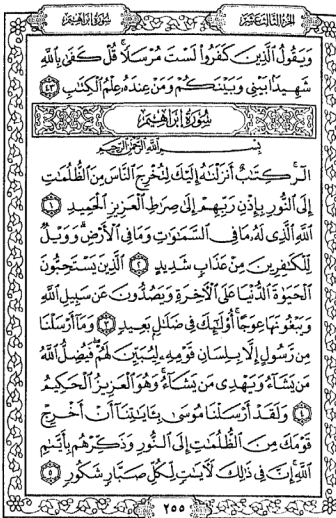 الجزء الثالث عشر
سورة إبراهيم
وَيَقُولُ ٱلَّذِينَ كَفَرُوا۟ لَسْتَ مُرْسَلًا ۚ قُلْ كَفَىٰ بِٱللَّهِ
شَهِيدًۢا بَيْنِى وَبَيْنَكُمْ وَمَنْ عِندَهُۥ عِلْمُ ٱلْكِتَـٰبِ ٤٣
سُورَةُ إبراهيم
بِسْمِ ٱللَّهِ ٱلرَّحْمَـٰنِ ٱلرَّحِيمِ
الٓر ۚ كِتَـٰبٌ أَنزَلْنَـٰهُ إِلَيْكَ لِتُخْرِجَ ٱلنَّاسَ مِنَ ٱلظُّلُمَـٰتِ
إِلَى ٱلنُّورِ بِإِذْنِ رَبِّهِمْ إِلَىٰ صِرَٰطِ ٱلْعَزِيزِ ٱلْحَمِيدِ ١
ٱللَّهِ ٱلَّذِى لَهُۥ مَا فِى ٱلسَّمَـٰوَٰتِ وَمَا فِى ٱلْأَرْضِ ۗ وَوَيْلٌ
لِّلْكَـٰفِرِينَ مِنْ عَذَابٍ شَدِيدٍ ٢ ٱلَّذِينَ يَسْتَحِبُّونَ
ٱلْحَيَوٰةَ ٱلدُّنْيَا عَلَى ٱلْـَٔاخِرَةِ وَيَصُدُّونَ عَن سَبِيلِ ٱللَّهِ
وَيَبْغُونَهَا عِوَجًا ۚ أُو۟لَـٰٓئِكَ فِى ضَلَـٰلٍۭ بَعِيدٍ ٣ وَمَآ أَرْسَلْنَا
مِن رَّسُولٍ إِلَّا بِلِسَانِ قَوْمِهِۦ لِيُبَيِّنَ لَهُمْ ۖ فَيُضِلُّ ٱللَّهُ
مَن يَشَآءُ وَيَهْدِى مَن يَشَآءُ ۚ وَهُوَ ٱلْعَزِيزُ ٱلْحَكِيمُ
٤ وَلَقَدْ أَرْسَلْنَا مُوسَىٰ بِـَٔايَـٰتِنَآ أَنْ أَخْرِجْ
قَوْمَكَ مِنَ ٱلظُّلُمَـٰتِ إِلَى ٱلنُّورِ وَذَكِّرْهُم بِأَيَّىٰمِ
ٱللَّهِ ۚ إِنَّ فِى ذَٰلِكَ لَـَٔايَـٰتٍ لِّكُلِّ صَبَّارٍ شَكُورٍ ٥
٢٥٥